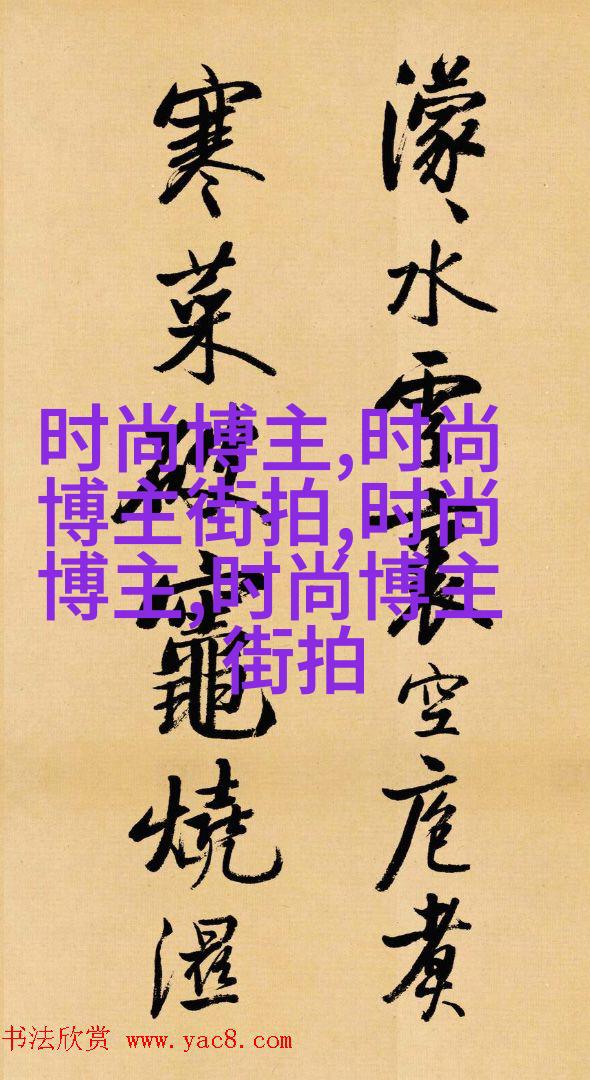 濛々水雲裏空庖煮
寒菜破竈燒濕
时尚博主,时尚
博主街拍,时尚
博主,时尚博主
街拍
书法欣赏 www.yac8.com